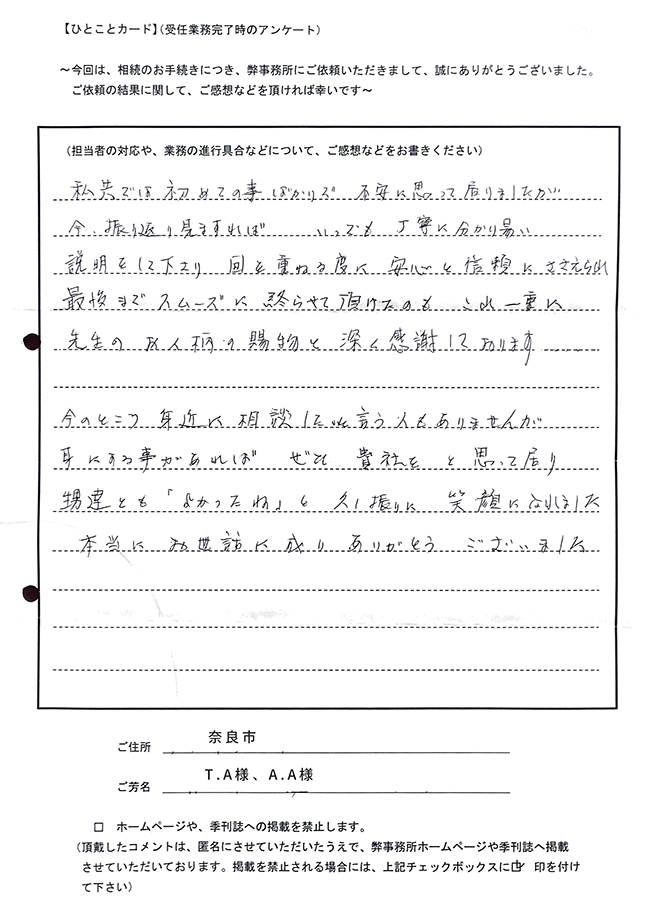 【ひとことカード】（受任業務完了時のアンケート）
～今回は、相続のお手続きにつき、弊事務所にご依頼いただきまして、誠にありがとうございました。
ご依頼の結果に関して、ご感想などを頂ければ幸いです～
（担当者の対応や、業務の進行具合などについて、ご感想などをお書きください）
私共では初めての事ばかりで 不安に思って居りましたが
今、振り返り見ますれば いつでも 丁寧に分かり易い
説明をして下さり 回を重ねる度に 安心と信頼にささえられ
最後までスムーズに終らせて頂けたのも これ一重に
先生の お人柄の賜物と 深く感謝しております
今のところ 身近に相談したいと言う人もありませんが
耳にする事があれば ぜひ 貴社を と思って居り
甥達とも「よかったね」と 久し振りに 笑顔になれました
本当に お世話に成り ありがとう ございました
ご住所 奈良市
ご芳名 T.A様、A.A様
□ ホームページや、季刊誌への掲載を禁止します。
（頂戴したコメントは、匿名にさせていただいたうえで、弊事務所ホームページや季刊誌へ掲載
させていただいております。掲載を禁止される場合には、上記チェックボックスに☑ 印を付け
て下さい）